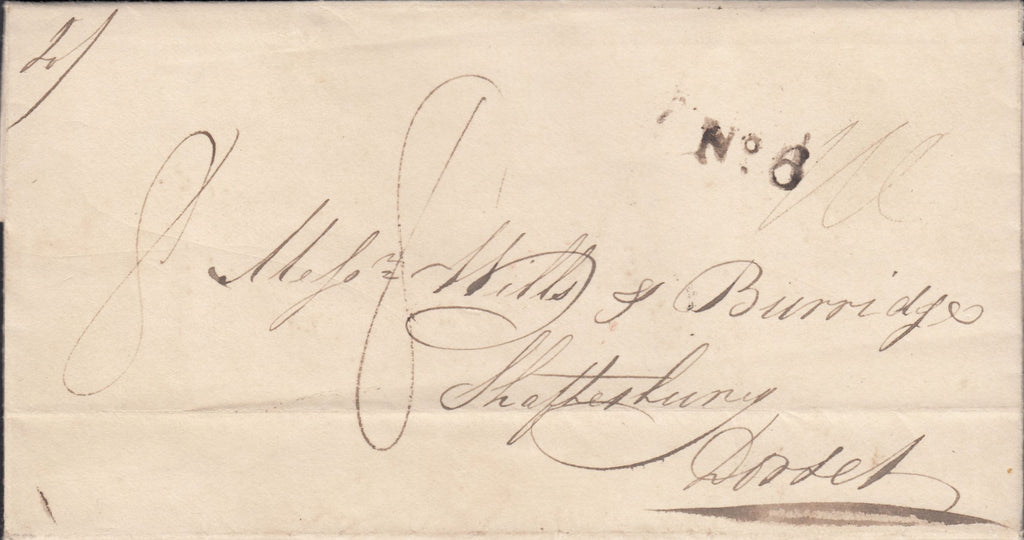 No. 6
8
8
Messrs Wills & Burridge
Shaftesbury
Dorset